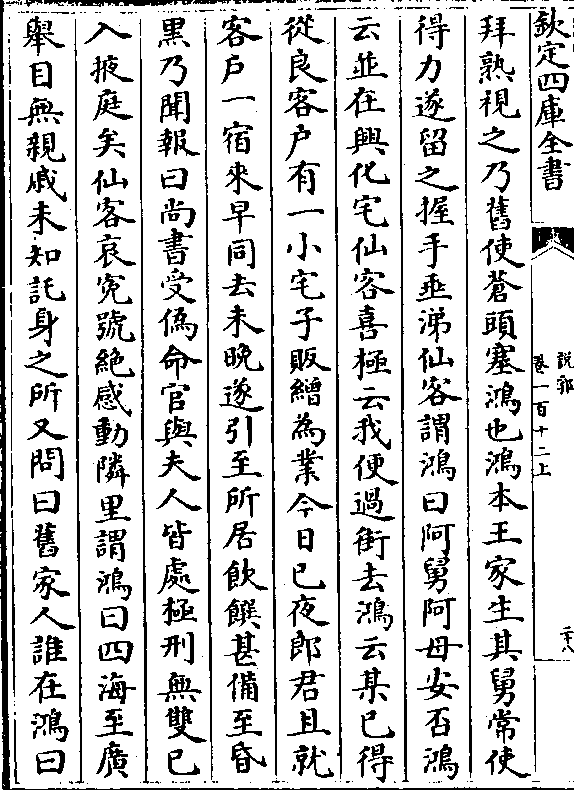 欽定四庫全書
說郛
卷一百十二上
二十八
拜熟視之乃舊使蒼頭塞鴻也鴻本王家生其舅常使
得力遂留之握手垂涕仙客謂鴻曰阿舅阿母安否鴻
云並在興化宅仙客喜極云我便過街去鴻云某已得
從良客户有一小宅子販繒為業今日已夜郎君且就
客户一宿來早同去未晚遂引至所居飲饌甚備至昏
黒乃聞報曰尚書受偽命官與夫人皆處極刑無雙已
入掖庭矣仙客哀寃號絶感動隣里謂鴻曰四海至廣
舉目無親戚未知託身之所又問曰舊家人誰在鴻曰